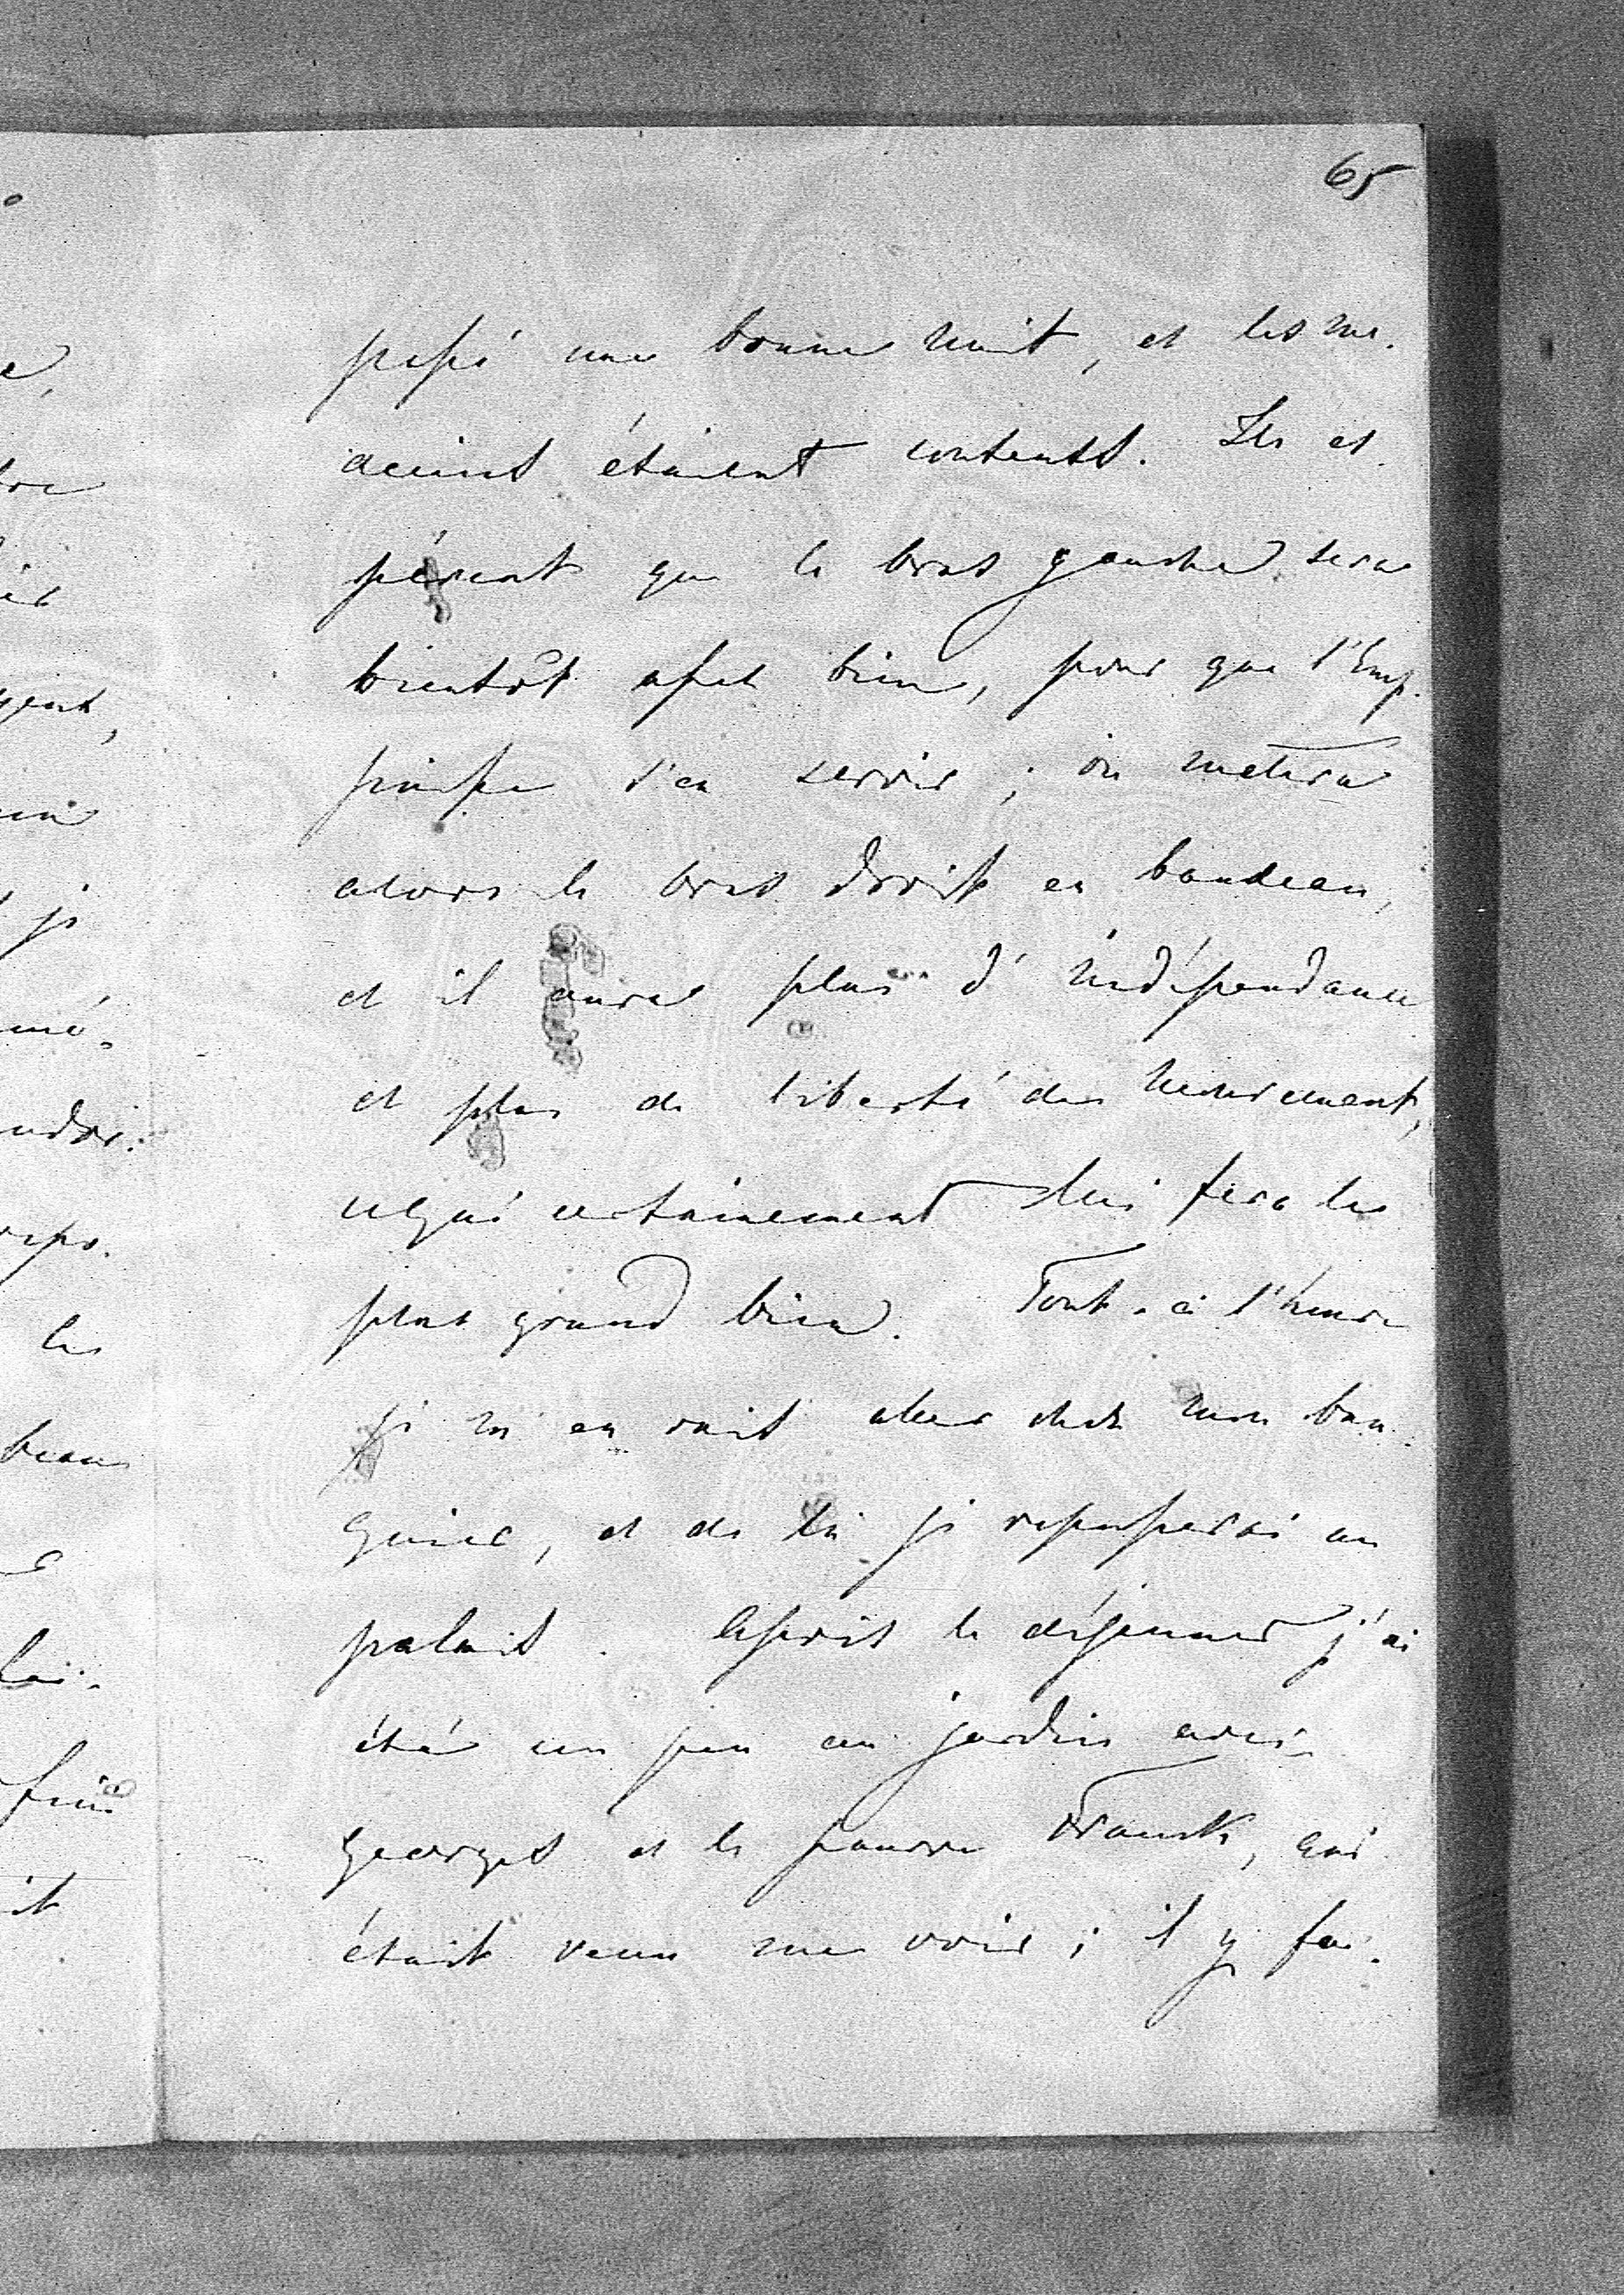 65
passé une bonne nuit, et les mé-
decins étaient contents. Ils es-
pèrent que le bras gauche sera
bientôt assez bien, pour que l'Emp.
puisse s'en servir ; on mettra
alors le bras droit en bandeau,
et il aura plus d'indépendance
et plus de liberté de mouvement,
ce qui certainement lui fera le
plus grand bien. Tout-à l'heure
je m'en vais aller chez mon ban-
quier, et de là je repasserai au
palais. Après le déjeuner j'ai
été un peu au jardin avec
Georges et le pauvre Franck, qui
était venu me voir ; il y fai-